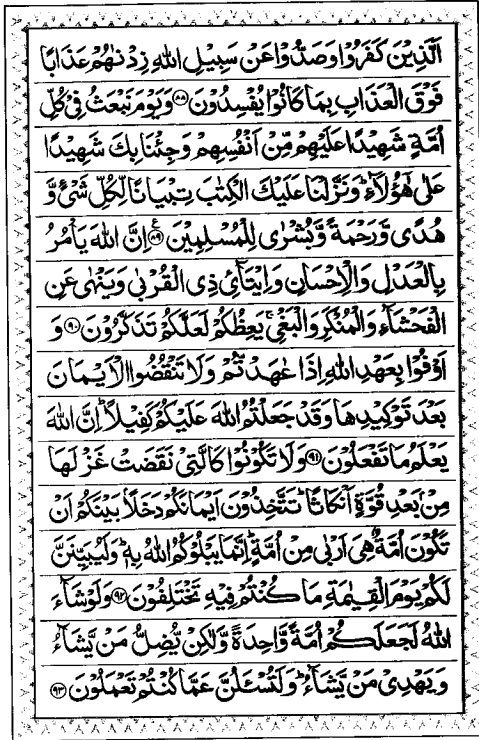 اَلَّذِيْنَ كَفَرُوْا وَصَدُّوْا عَنْ سَبِيْلِ اللّٰهِ زِدْنٰهُمْ عَذَابًا
فَوْقَ الْعَذَابِ بِمَا كَانُوْا يُفْسِدُوْنَ ﴿۸۸﴾ وَيَوْمَ نَبْعَثُ فِيْ كُلِّ
اُمَّةٍ شَهِيْدًا عَلَيْهِمْ مِّنْ اَنْفُسِهِمْ وَجِئْنَا بِكَ شَهِيْدًا
عَلٰى هٰٓؤُلَآءِ ؕ وَنَزَّلْنَا عَلَيْكَ الْكِتٰبَ تِبْيَانًا لِّكُلِّ شَيْءٍ وَّ
هُدًى وَّرَحْمَةً وَّبُشْرٰى لِلْمُسْلِمِيْنَ ﴿۸۹﴾ ع اِنَّ اللّٰهَ يَاْمُرُ
بِالْعَدْلِ وَالْاِحْسَانِ وَاِيْتَآئِ ذِي الْقُرْبٰى وَيَنْهٰى عَنِ
الْفَحْشَآءِ وَالْمُنْكَرِ وَالْبَغْيِ ۚ يَعِظُكُمْ لَعَلَّكُمْ تَذَكَّرُوْنَ ﴿۹۰﴾ وَ
اَوْفُوْا بِعَهْدِ اللّٰهِ اِذَا عٰهَدْتُّمْ وَلَا تَنْقُضُوا الْاَيْمَانَ
بَعْدَ تَوْكِيْدِهَا وَقَدْ جَعَلْتُمُ اللّٰهَ عَلَيْكُمْ كَفِيْلًا ؕ اِنَّ اللّٰهَ
يَعْلَمُ مَا تَفْعَلُوْنَ ﴿۹۱﴾ وَلَا تَكُوْنُوْا كَالَّتِيْ نَقَضَتْ غَزْلَهَا
مِنْۢ بَعْدِ قُوَّةٍ اَنْكَاثًا ؕ تَتَّخِذُوْنَ اَيْمَانَكُمْ دَخَلًاۢ بَيْنَكُمْ اَنْ
تَكُوْنَ اُمَّةٌ هِيَ اَرْبٰى مِنْ اُمَّةٍ ؕ اِنَّمَا يَبْلُوْكُمُ اللّٰهُ بِهٖ ؕ وَلَيُبَيِّنَنَّ
لَكُمْ يَوْمَ الْقِيٰمَةِ مَا كُنْتُمْ فِيْهِ تَخْتَلِفُوْنَ ﴿۹۲﴾ وَلَوْ شَآءَ
اللّٰهُ لَجَعَلَكُمْ اُمَّةً وَّاحِدَةً وَّلٰكِنْ يُّضِلُّ مَنْ يَّشَآءُ
وَيَهْدِيْ مَنْ يَّشَآءُ ؕ وَلَتُسْـَٔلُنَّ عَمَّا كُنْتُمْ تَعْمَلُوْنَ ﴿۹۳﴾